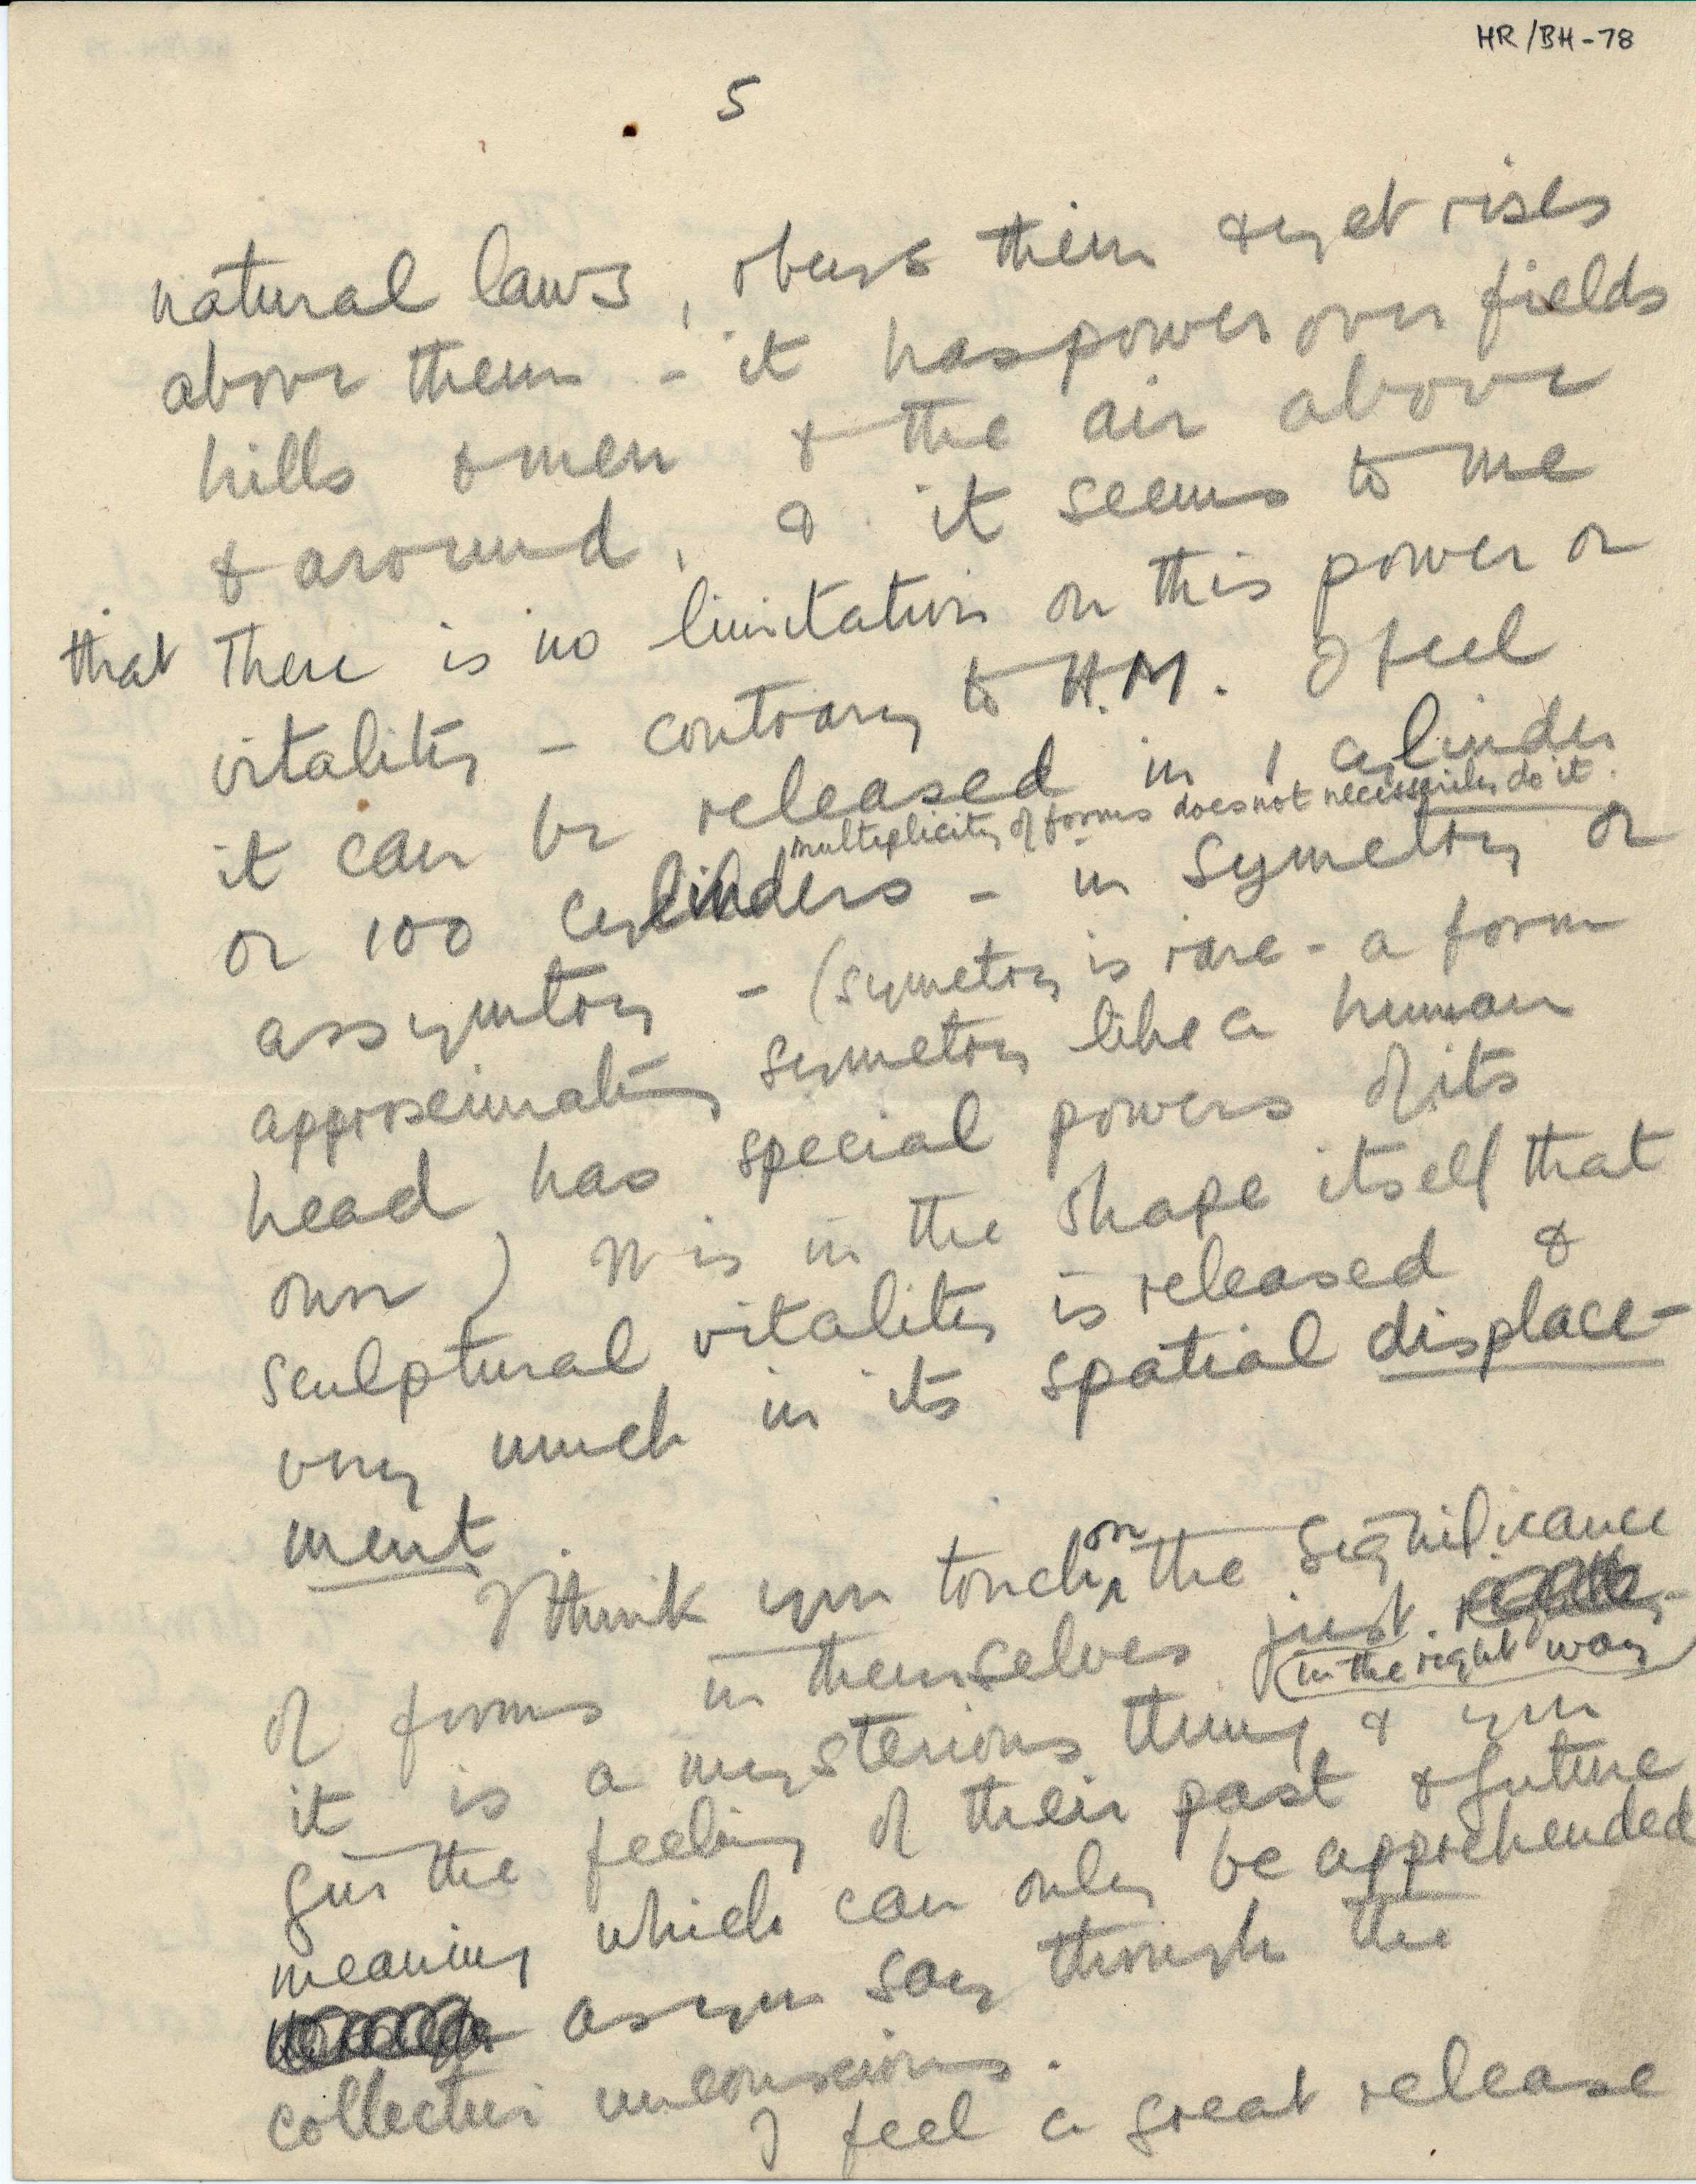 HR/BH-78
5
natural laws, obeys them & yet rises
above them - it has power over fields
hills & men & the air above
& around, & it seems to me
that There is no limitation on this power or
vitality - contrary to H.M. I feel
it can be released in 1 cylinder
multiplicity of forms does not necessarily do it.
or 100 cylinders - in symetry or
assymtry - (symetry is rare - a form
approximating symetry like a human
head has special powers of its
own) It is in the shape itself that
sculptural vitality is released &
very much in its spatial displace-
ment
I think you touch on the significance
of forms in themselves just
in the right way
it is a mysterious thing & you
give the feeling of their past & future
meaning which can only be apprehended
as you say through the
collective unconscious.
I feel a great release